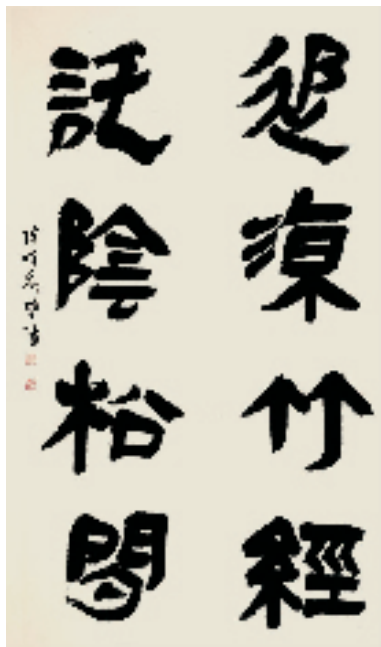 追涼竹經
託陰松間